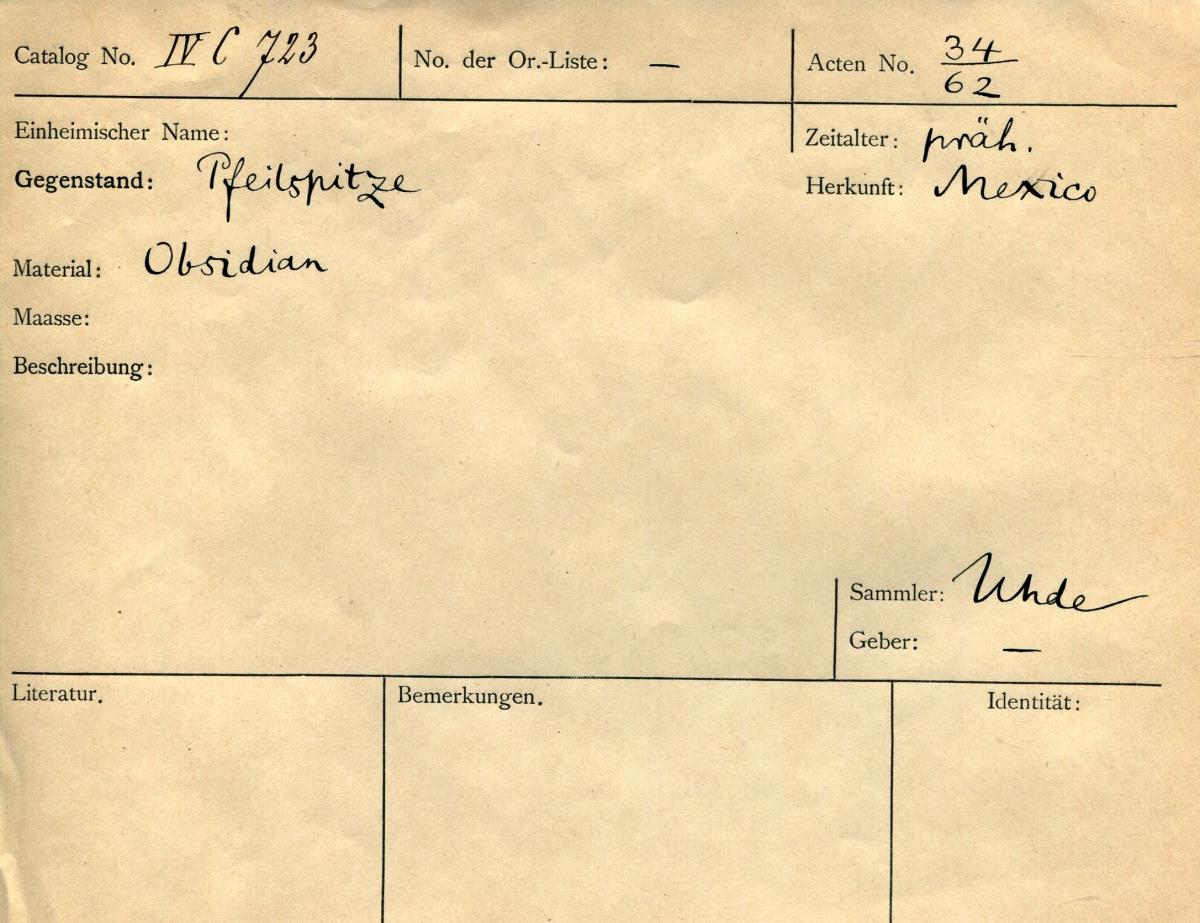 Catalog No. IV C 723 No. der Or.-Liste: — Acten No. 34/62
Einheimischer Name: Zeitalter: präh.
Gegenstand: Pfeilspitze Herkunft: Mexico
Material: Obsidian
Maasse:
Beschreibung:
Sammler: Uhde
Geber: —
Literatur. Bemerkungen. Identität: